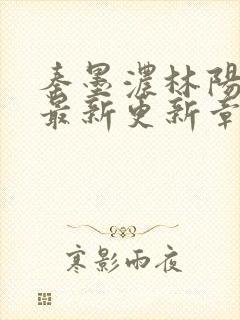 秦墨濃林陽
最新更新章
寒影雨夜